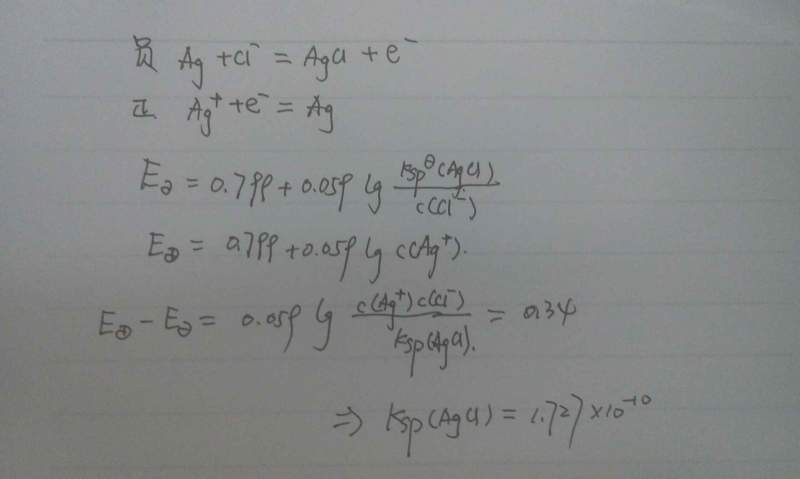 负 Ag + Cl⁻ = AgCl + e⁻
正 Ag⁺ + e⁻ = Ag
E⊖ = 0.799 + 0.059 lg Ksp^θ(AgCl) / c(Cl⁻)
E⊕ = 0.799 + 0.059 lg c(Ag⁺).
E⊕ − E⊖ = 0.059 lg c(Ag⁺)c(Cl⁻) / Ksp(AgCl). = 0.34
⇒ Ksp(AgCl) = 1.727×10⁻¹⁰